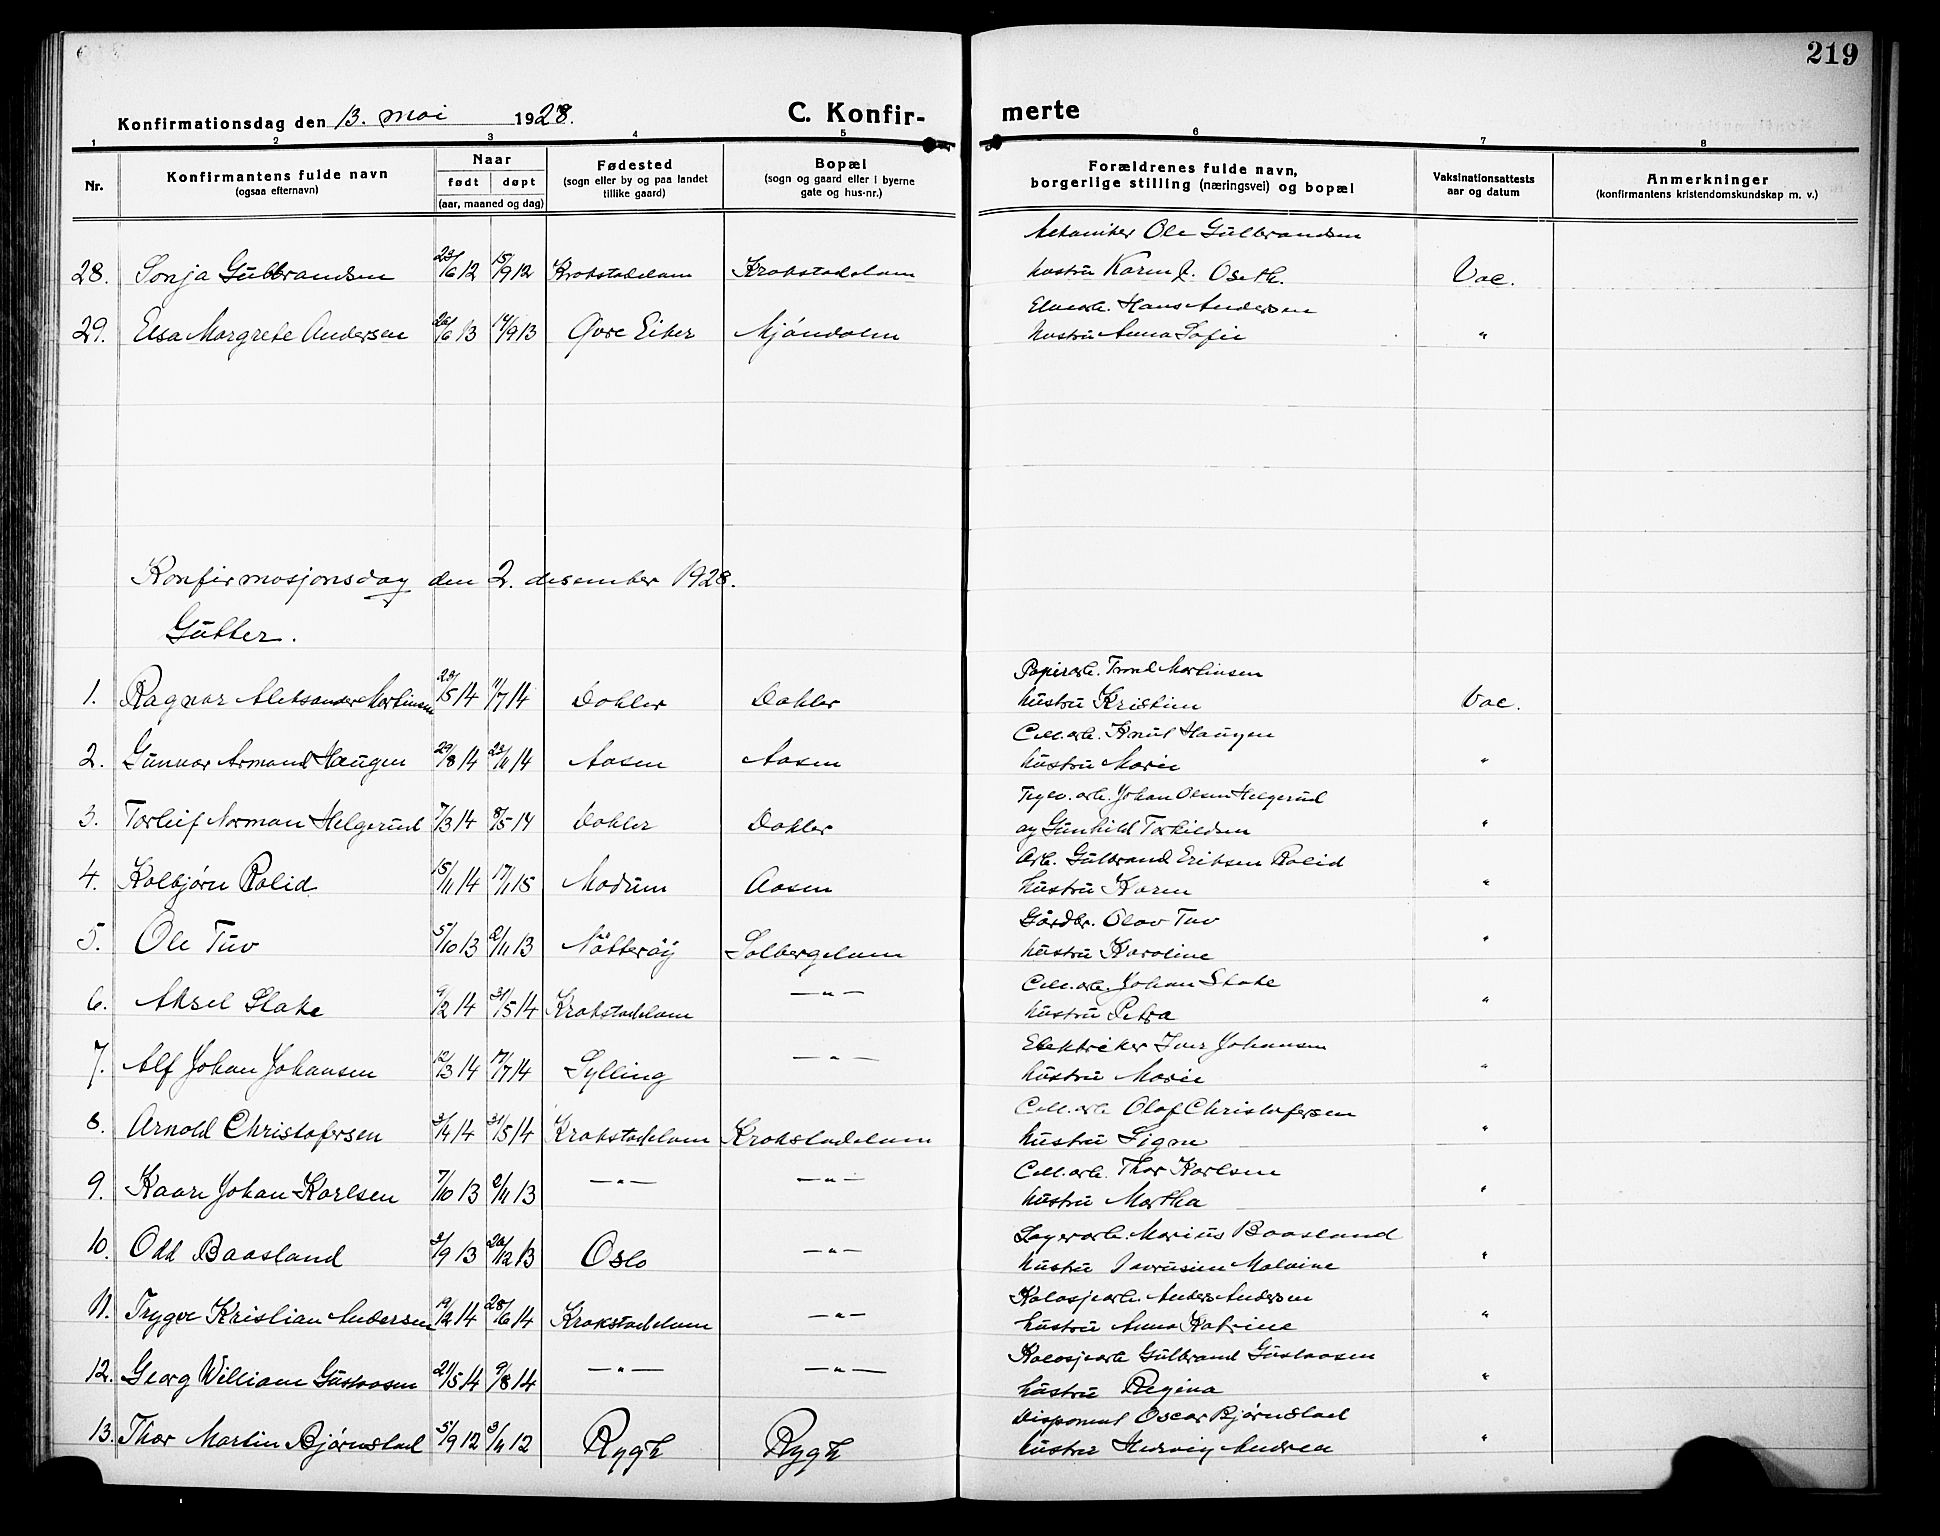 219
Konfirmationsdag den 13. mai 1928.
C. Konfirmerte
1 2 3 4 5 6 7 8
Nr.
Konfirmantens fulde navn
(ogsaa efternavn)
Naar
født døpt
(aar, maaned og dag)
Fødested
(sogn eller by og paa landet
tillike gaard)
Bopæl
(sogn og gaard eller i byerne
gate og hus-nr.)
Forældrenes fulde navn,
borgerlige stilling (næringsvei) og bopæl
Vaksinationsattests
aar og datum
Anmerkninger
(konfirmantens kristendomskundskap m. v.)
Mekaniker Ole Gulbrandsen
28. Sonja Gulbrandsen 23/6 12 15/9 12 Krokstadelven Krokstadelven hustru Karen J. Oseth. Vac.
Elvearb. Hans Andersen
29. Elsa Margrete Andersen 26/6 13 14/9 13 Øvre Eiker Mjöndalen hustru Anna Sofie "
Konfirmasjonsdag den 2. desember 1928.
Gutter.
Papirarb. Trond Martinsen
1. Ragnar Aleksander Martinsen 23/5 14 11/7 14 Dokler Dokler hustru Kristine Vac.
Cell.arb. Knut Haugen
2. Gunnar Armand Haugen 29/8 14 23/11 14 Aasen Aasen hustru Marie "
Teglv. arb. Johan Olsen Helgerud
3. Torleif Norman Helgerud 7/3 14 8/5 14 Dokler Dokler og Gunhild Torkildsen "
Arb. Gulbrand Eriksen Rolid
4. Kolbjørn Rolid 15/11 14 17/1 15 Modum Aasen hustru Karen "
Gårdbr. Olav Tuv
5. Ole Tuv 5/10 13 2/11 13 Nötteröy Solbergelven hustru Karoline "
Cell.arb. Johan Stake
6. Aksel Stake 9/2 14 31/5 14 Krokstadelven — " — hustru Petra "
Elektriker Iver Johansen
7. Alf Johan Johansen 12/3 14 17/7 14 Sylling — " — hustru Marie "
Cell.arb. Olaf Christofersen
8. Arnold Christofersen 3/4 14 31/5 14 Krokstadelven Krokstadelven hustru Signe "
Cell.arb. Thor Karlsen
9. Kaare Johan Karlsen 7/10 13 2/11 13 — " — — " — hustru Martha "
Lagerarb. Marius Baasland
10. Odd Baasland 3/9 13 26/12 13 Oslo — " — hustru Malvine "
Kalosjearb. Anders Andersen
11. Trygve Kristian Andersen 19/2 14 28/6 14 Krokstadelven — " — hustru Anna Katrine "
Kalosjearb Gulbrand Gustavsen
12. Georg William Gustavsen 21/5 14 9/8 14 — " — — " — hustru Regina "
Disponent Oscar Bjørnstad
13. Thor Martin Bjørnstad 5/9 12 3/11 12 Rygh Rygh hustru Hedvig Andrea "